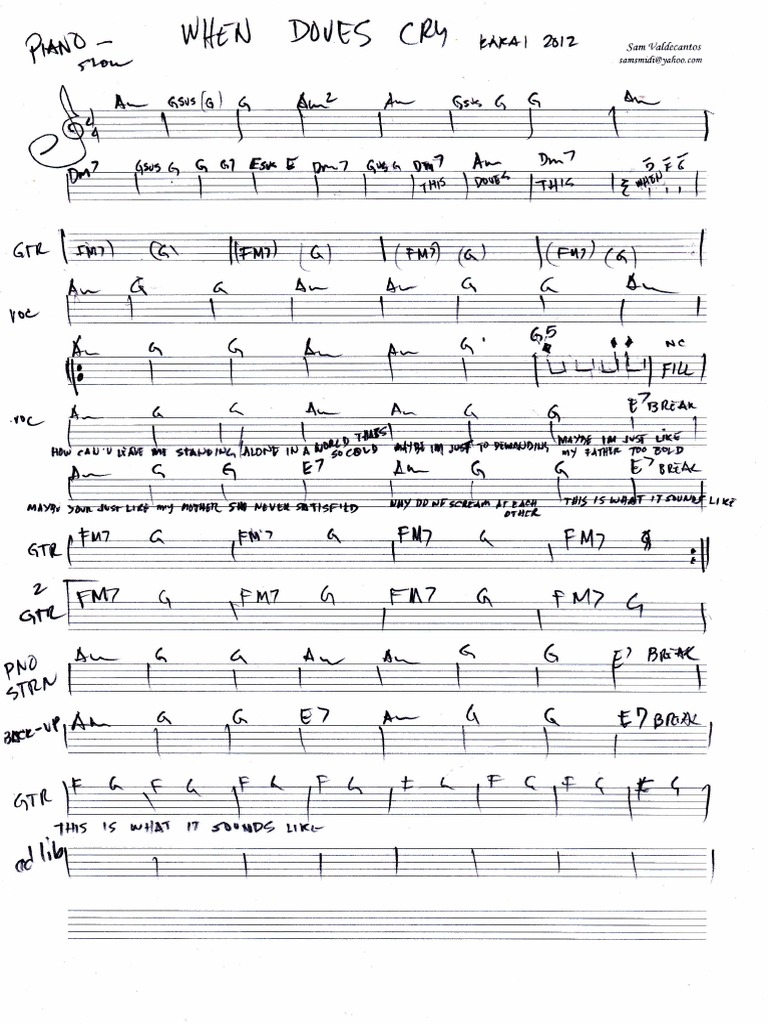 PIANO – WHEN DOVES CRY KAKAI 2012 Sam Valdecantos
slow samsmidi@yahoo.com
Am Gsus (G) G Am2 Am Gsus G G Am
4
4
Dm7 Gsus G G G7 Esus E Dm7 Gsus G Dm7 Am Dm7 D F G
THIS DOVES THIS WHEN
GTR (FM7) (G) (FM7) (G) (FM7) (G) (FM7) (G)
VOC Am G G Am Am G G Am
Am G G Am Am G G5 NC
FILL
VOC Am G G Am Am G G E7 BREAK
HOW CAN U LEAVE ME STANDING ALONE IN A WORLD THATS SO COLD MAYBE IM JUST TO DEMANDING MAYBE IM JUST LIKE MY FATHER TOO BOLD
Am G G E7 Am G G E7 BREAK
MAYBE YOUR JUST LIKE MY MOTHER SHE NEVER SATISFIED WHY DO WE SCREAM AT EACH OTHER THIS IS WHAT IT SOUNDS LIKE
GTR FM7 G FM7 G FM7 G FM7 G
2
GTR FM7 G FM7 G FM7 G FM7 G
PNO STRN Am G G Am Am G G E7 BREAK
BACK-UP Am G G E7 Am G G E7 BREAK
GTR F G F G F G F G F G F G F G F G
THIS IS WHAT IT SOUNDS LIKE
ad lib